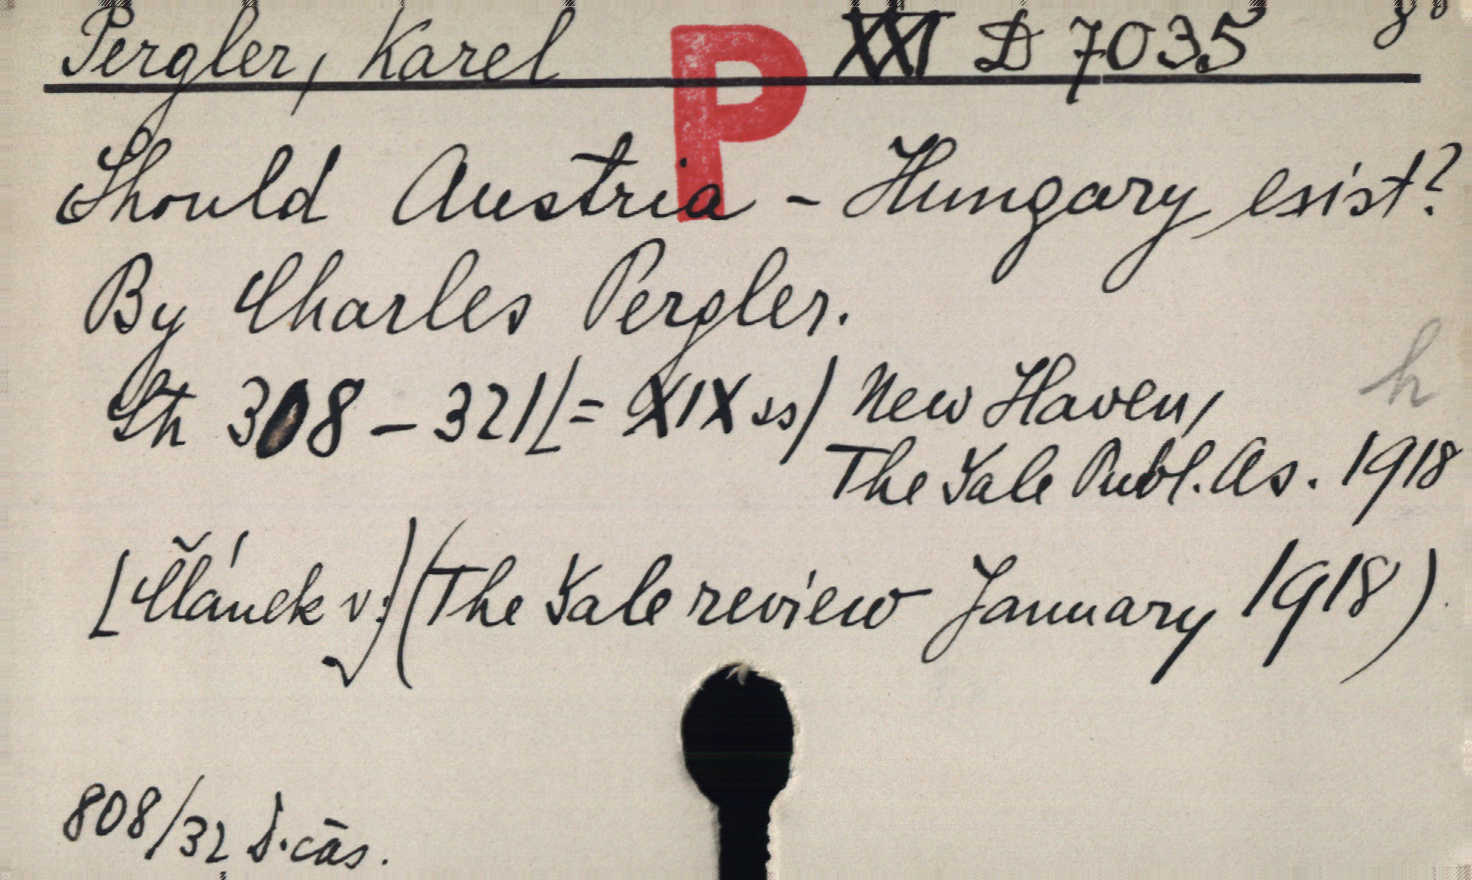 Pergler, Karel P XXI D 7035 8°
Should Austria - Hungary exist?
By Charles Pergler.
308 - 321 [= XIX ss) New Haven,
h
The Yale Publ. As. 1918
[Článek v:] (The Yale review January 1918)
808/32 D. čas.